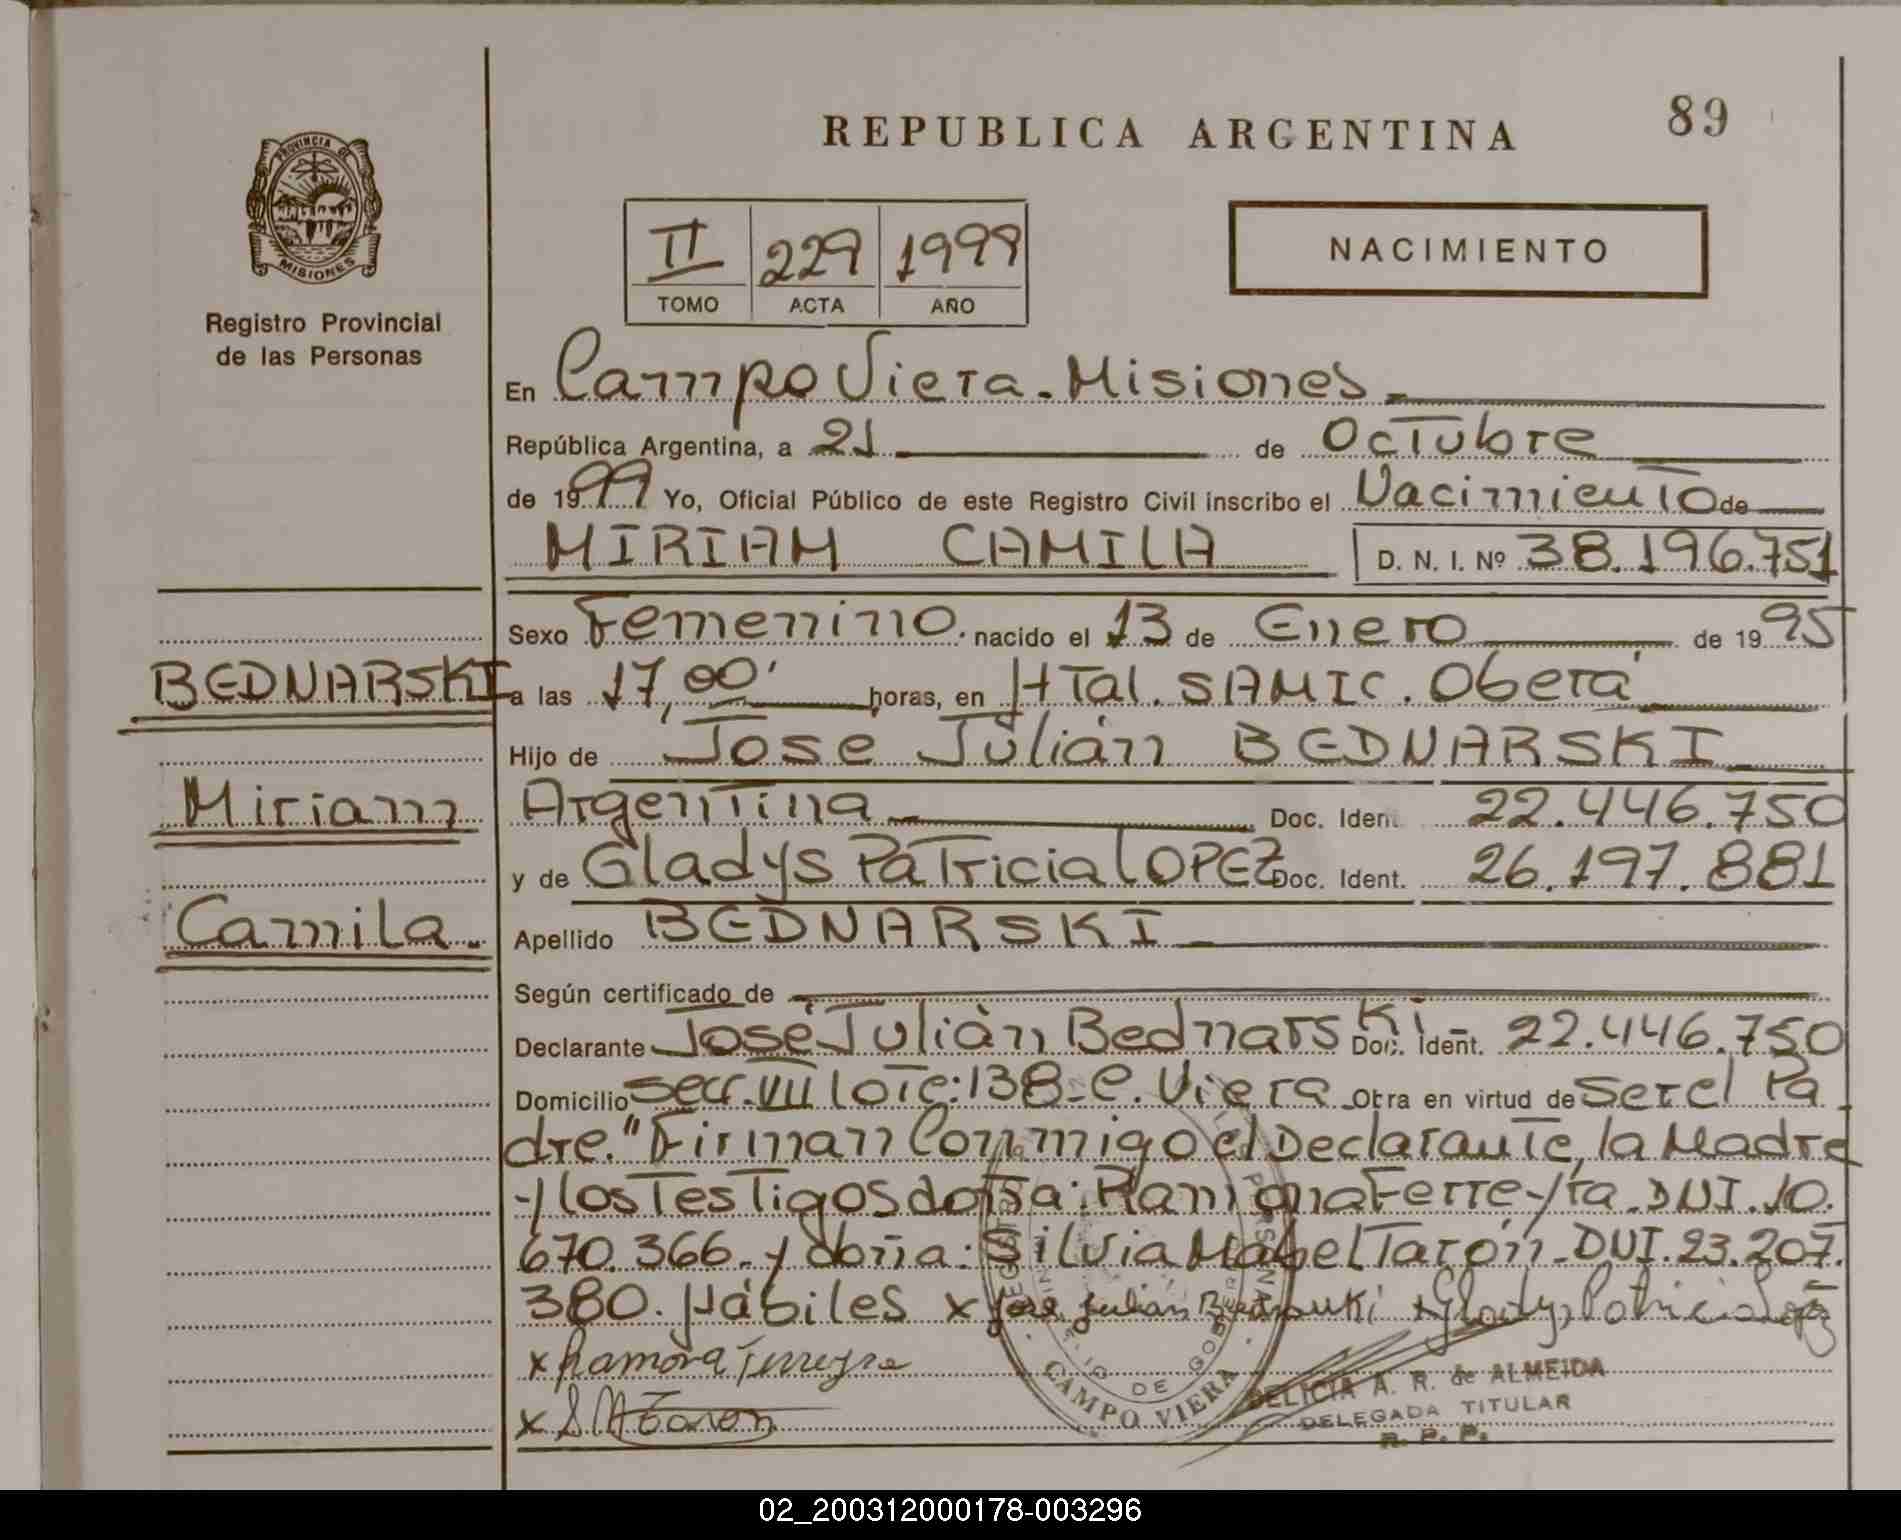 REPUBLICA ARGENTINA
89
PROVINCIA DE
MISIONES
Registro Provincial
de las Personas
II 229 1999
TOMO ACTA AÑO
NACIMIENTO
En Campo Viera - Misiones
República Argentina, a 21 de Octubre
de 1999 Yo, Oficial Público de este Registro Civil inscribo el Nacimiento de
MIRIAM CAMILA D. N. I. Nº 38.196.751
Sexo Femenino. nacido el 13 de Enero de 1995
BEDNARSKI
a las 17,00' horas, en HTal. SAMIC. Oberá
Hijo de José Julián BEDNARSKI
Miriam
Argentina Doc. Ident. 22.446.750
y de Gladys Patricia LOPEZ Doc. Ident. 26.197.881
Camila.
Apellido BEDNARSKI
Según certificado de
Declarante José Julián Bednarski - Doc. Ident. 22.446.750
Domicilio Secc. VII Lote: 138 - C. Viera Obra en virtud de Ser el Pa
dre." Firman Conmigo el Declarante, la Madre
y los Testigos doña: Ramona Ferreyra. DNI. 10.
670.366 - y doña: Silvia Mabel Tarón - DNI. 23.207.
380. Hábiles x José Julián Bednarski x Gladys Patricia Lopez
x Ramona Ferreyra
x S. M Taron
CAMPO VIERA
DELICIA A. R. de ALMEIDA
DELEGADA TITULAR
R. P. P.
02_200312000178-003296